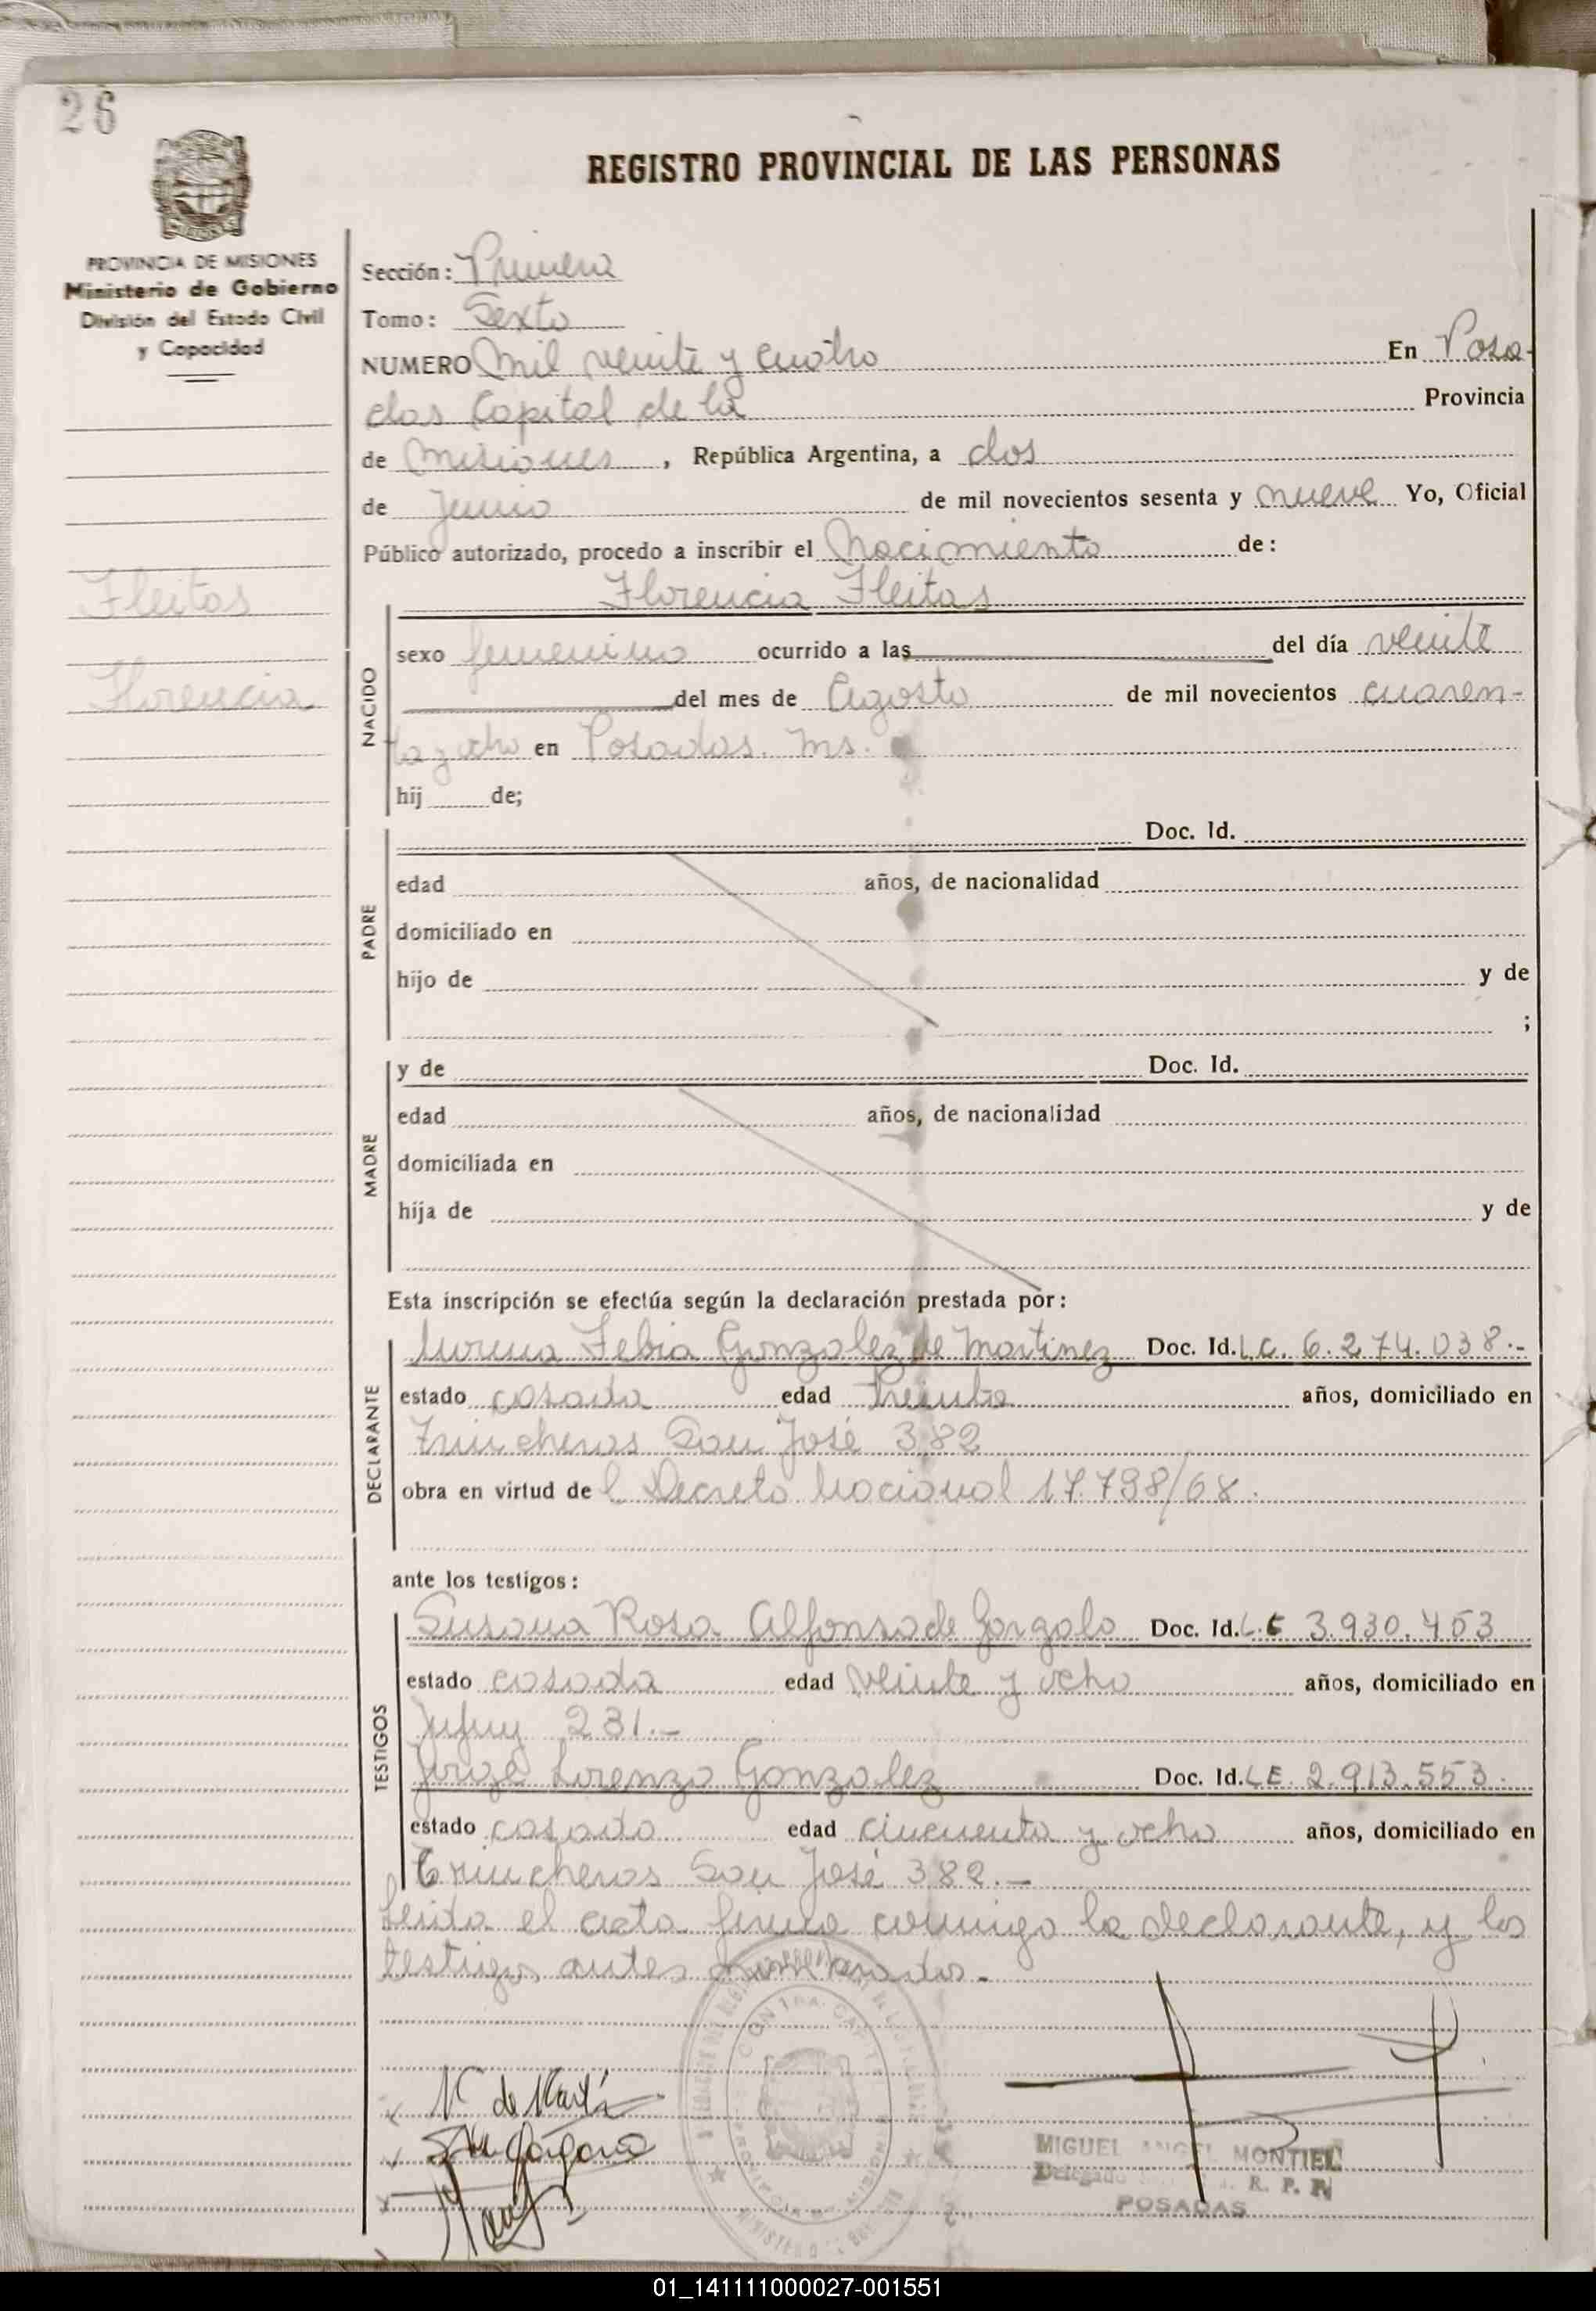 26
REGISTRO PROVINCIAL DE LAS PERSONAS
PROVINCIA DE MISIONES
Ministerio de Gobierno
División del Estado Civil
y Capacidad
Fleitas
Florencia
Sección: Primera
Tomo: Sexto
NUMERO Mil veinte y cuatro En Posa-
das Capital de la Provincia
de Misiones, República Argentina, a dos
de Junio de mil novecientos sesenta y nueve Yo, Oficial
Público autorizado, procedo a inscribir el Nacimiento de:
Florencia Fleitas
NACIDO
sexo femenino ocurrido a las del día veinte
del mes de Agosto de mil novecientos cuaren-
ta y ocho en Posadas. Ms.
hij de;
PADRE
Doc. Id.
edad años, de nacionalidad
domiciliado en
hijo de y de
;
MADRE
y de Doc. Id.
edad años, de nacionalidad
domiciliada en
hija de y de
Esta inscripción se efectúa según la declaración prestada por:
DECLARANTE
Gonzalez de Martinez Doc. Id. L.C. 6.274.038.-
estado casada edad treinta años, domiciliado en
Trincheras San José 382
obra en virtud de l Decreto Nacional 17.798/68.
ante los testigos:
TESTIGOS
Susana Rosa Alfonso de Doc. Id. L.C 3.930.453
estado casada edad veinte y ocho años, domiciliado en
Jujuy 231.-
Jorge Lorenzo Gonzalez Doc. Id. LE. 2.913.553.
estado casado edad cincuenta y ocho años, domiciliado en
Trincheras San José 382.-
Leida el acta firma conmigo la declarante, y los
testigos antes nombrados.-
MIGUEL ANGEL MONTIEL
Delegado R. P. P.
POSADAS
01_141111000027-001551